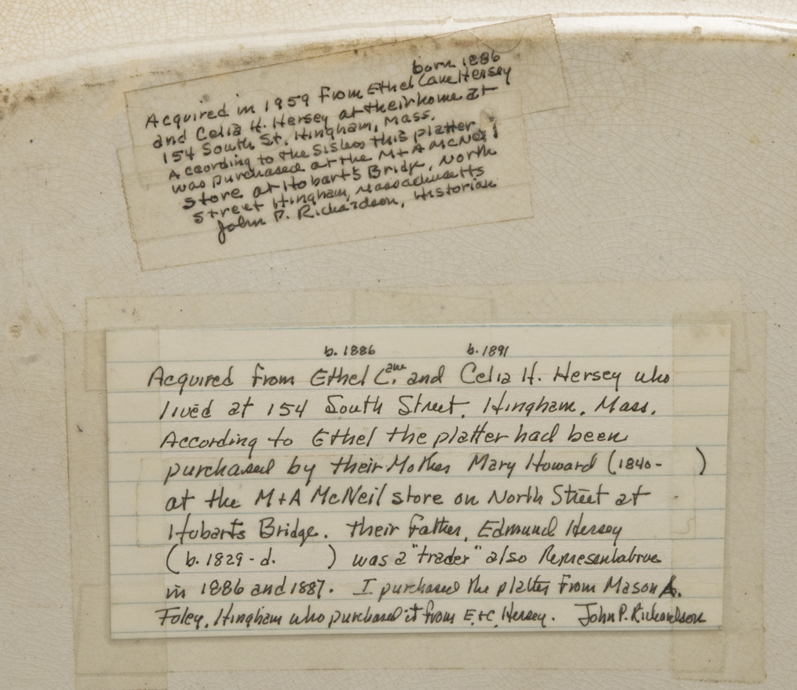 born 1886
Acquired in 1959 from Ethel Cane Hersey
and Celia H. Hersey at their home at
154 South St. Hingham, Mass.
According to the Sisters this platter
was purchased at the M+A McNeil
store at Hobart's Bridge, North
Street Hingham, Massachusetts
John P. Richardson, Historian
b. 1886 b. 1891
Acquired from Ethel C.ane and Celia H. Hersey who
lived at 154 South Street, Hingham, Mass.
According to Ethel the platter had been
purchased by their Mother Mary Howard (1840- )
at the M+A McNeil store on North Street at
Hobarts Bridge. Their father, Edmund Hersey
(b. 1829-d. ) was a "trader" also Representative
in 1886 and 1887. I purchased the platter from Mason A.
Foley, Hingham who purchased it from E.+C. Hersey. John P. Richardson